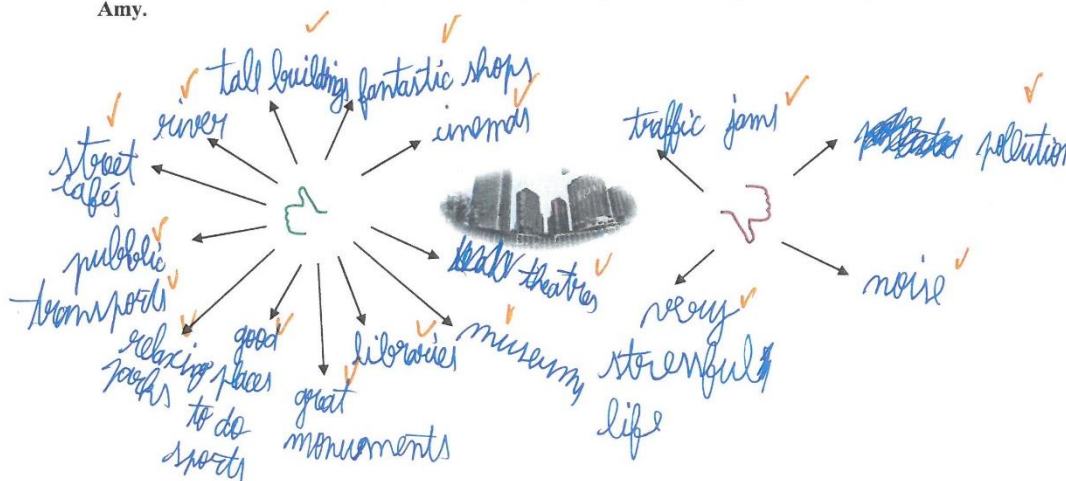 Amy.
tall buildings
fantastic shops
river
cinemas
street
cafés
pubblic
transports
relaxing
parks
good
places
to do
sports
great
monuments
libraries
museums
theatres
traffic jams
pollution
noise
very
stressful
life